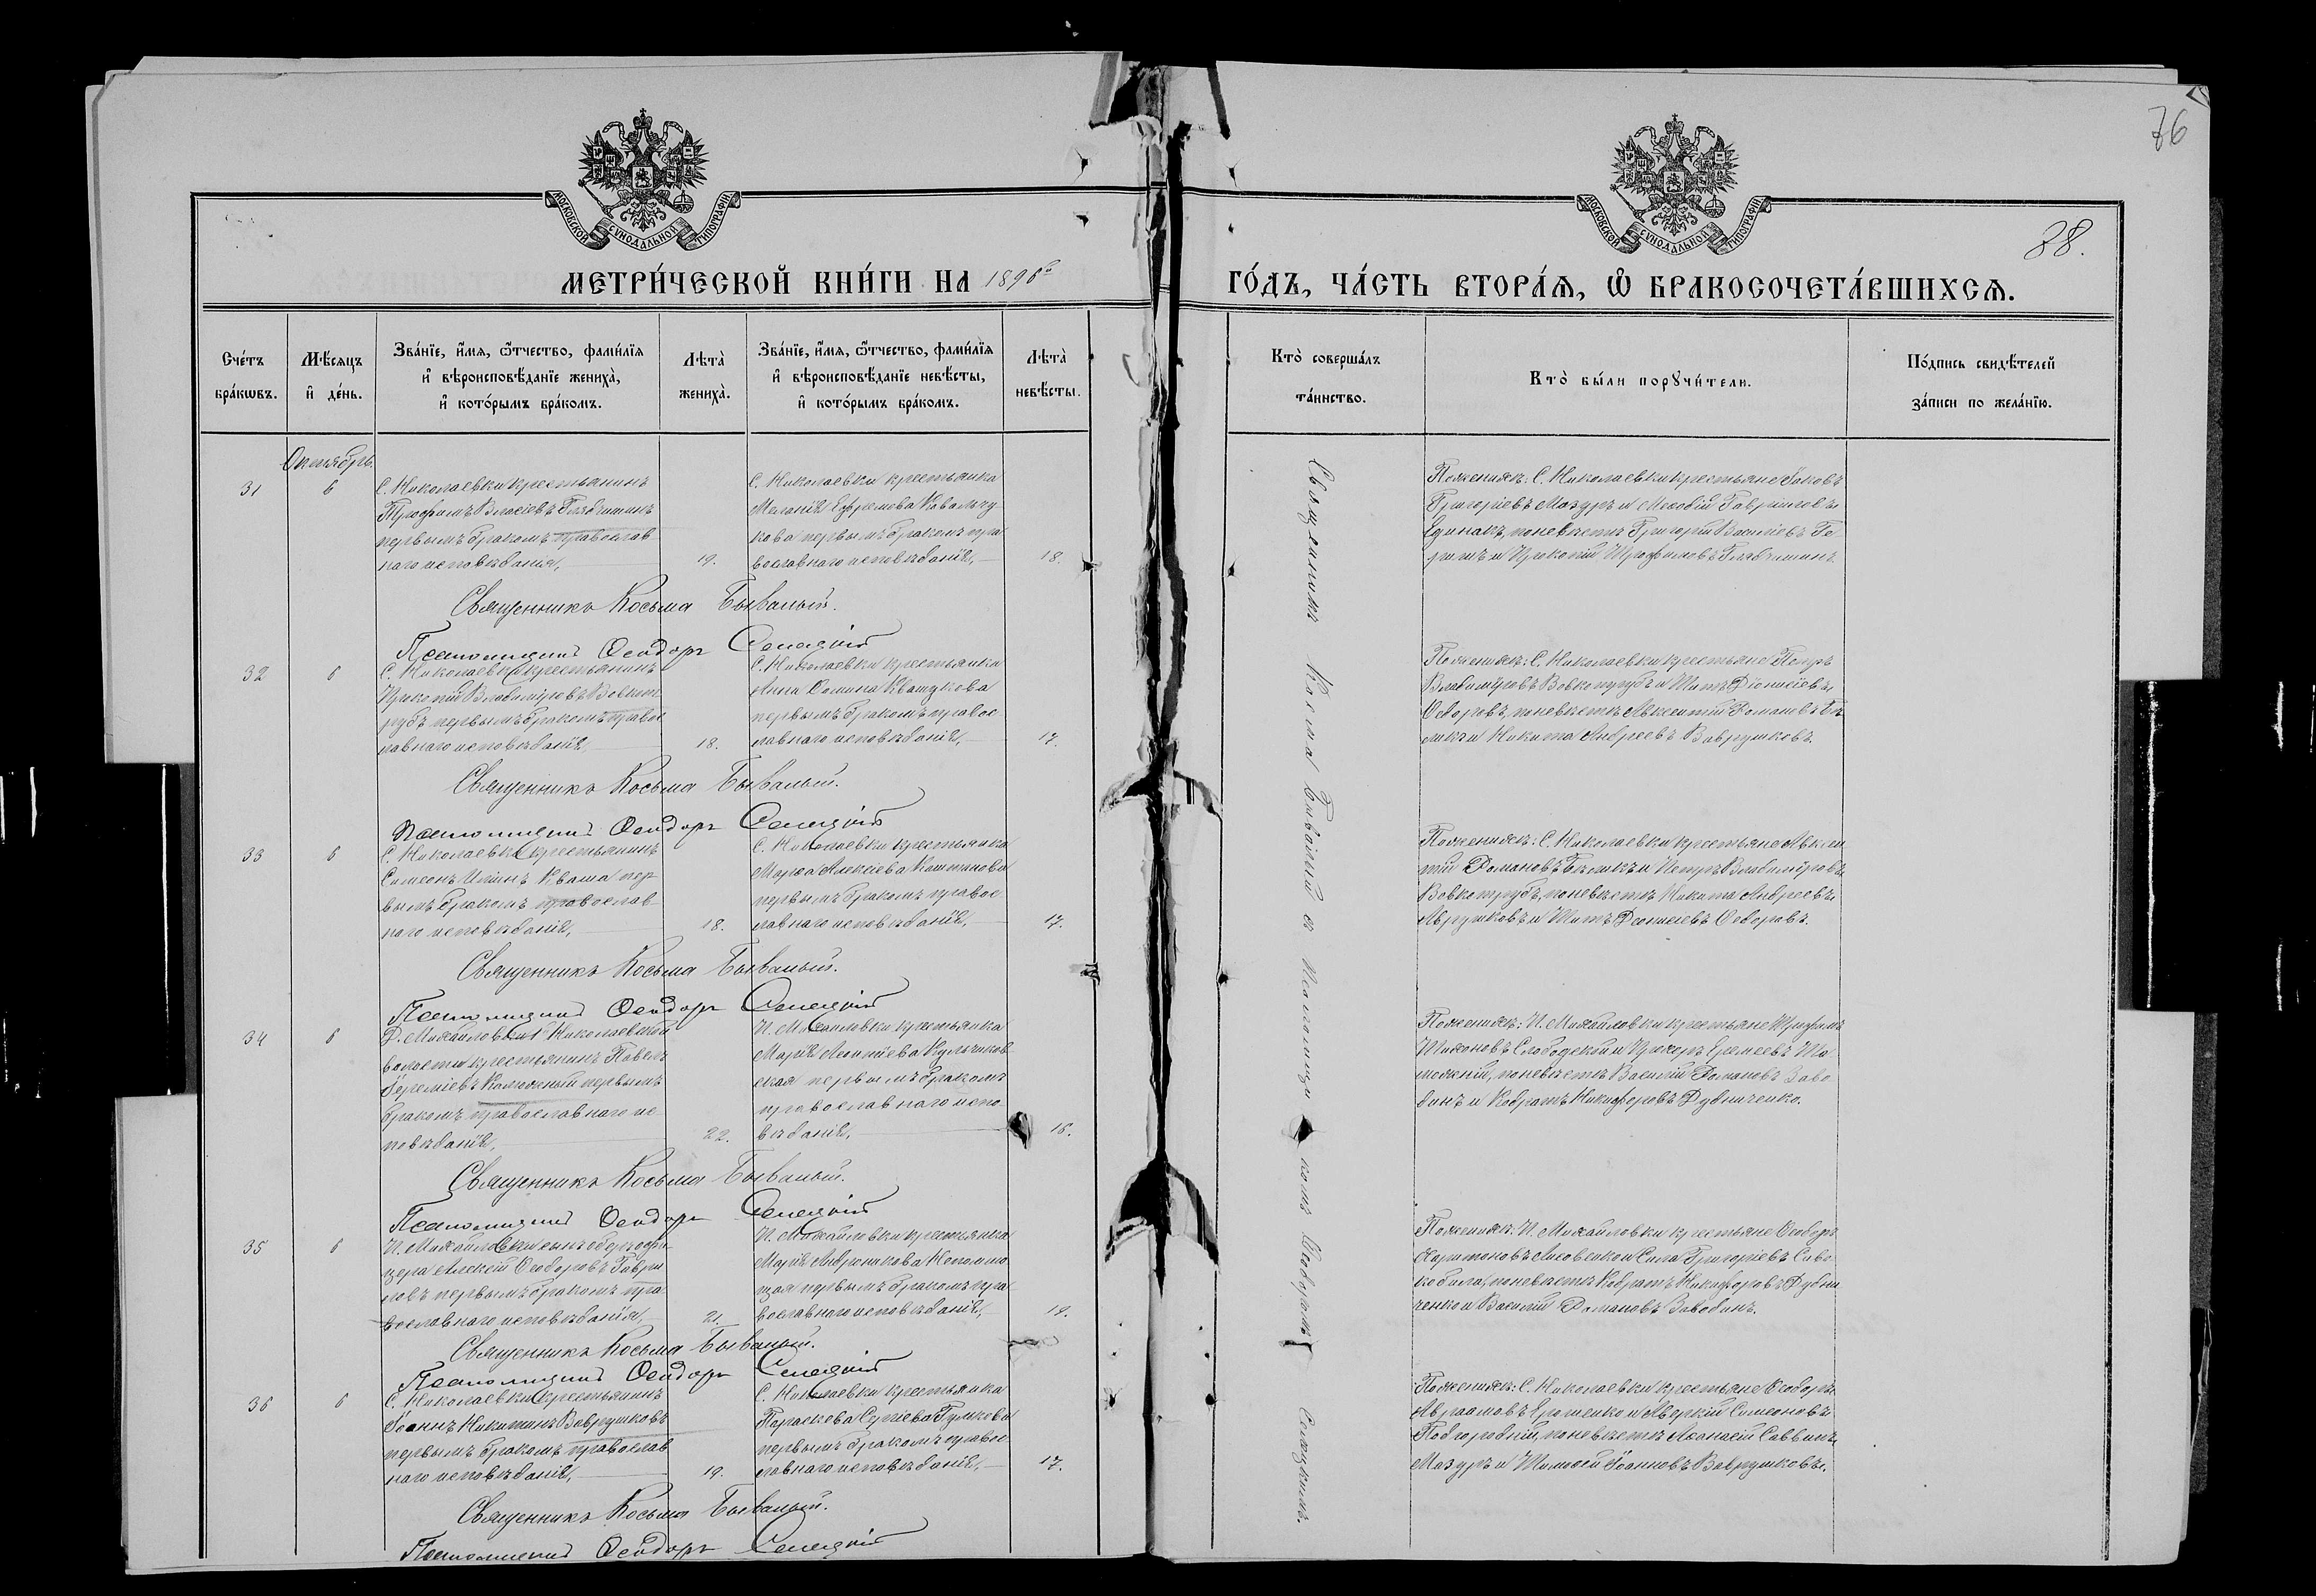 76
88.
МОСКОВСКОЙ СѴНОДАЛЬНОЙ ТИПОГРАФІИ
МОСКОВСКОЙ СѴНОДАЛЬНОЙ ТИПОГРАФІИ
МЕТРИ́ЧЕСКОЙ КНИ́ГИ НА 1896й ГО́ДЪ, ЧА́СТЬ ВТОРА́Я, Ѿ БРАКОСОЧЕТА́ВШИХСЯ.
Сче́тъ бра́кѡвъ.
Мѣ́сяцъ и҆ де́нь.
Зва́нїе, и҆́мя, ѻ҆́тчество, фами́лїя и҆ вѣроисповѣ́данїе жениха̀, и҆ кото́рымъ бра́комъ.
Лѣта̀ жениха̀.
Зва́нїе, и҆́мя, ѻ҆́тчество, фами́лїя и҆ вѣроисповѣ́данїе невѣ́сты, и҆ кото́рымъ бра́комъ.
Лѣта̀ невѣ́сты.
Кто̀ соверша́лъ та́инство.
Кто̀ бы́ли порꙋчи́тели.
По́дпись свидѣ́телей за́писи по жела́нїю.
Октябрь.
31
6
С. Николаевки крестьянинъ
Трофимъ Власіевъ
первымъ бракомъ православ
наго исповѣданія,
19.
С. Николаевки крестьянка
Меланія Ефремова Ковальчу
кова первымъ бракомъ пра
вославнаго исповѣданія,
18.
По женихѣ: С. Николаевки крестьяне Іаковъ
Григоріевъ Мазуръ и Гавріиловъ
Единакъ, по невѣстѣ Григорій Василіевъ Ге
и Прокопій Трофимовъ
Священникъ Косьма Бывалый.
Псаломщикъ Ѳеодоръ Сенецкій
32
6
С. Николаевки крестьянинъ
Прокопій Владиміровъ Вовкот
рубъ первымъ бракомъ правос
лавнаго исповѣданія,
18.
С. Николаевки крестьянка
Анна Ѳомина Квашукова
первымъ бракомъ правос
лавнаго исповѣданія,
17.
По женихѣ: С. Николаевки крестьяне Петръ
Владиміровъ Вовкотрубъ и Титъ Діонисіевъ
Ѳедоровъ, по невѣстѣ Авксентій Романовъ Бѣ
ликъ и Никита Андреевъ Ваврушковъ.
Священникъ Косьма Бывалый.
Псаломщикъ Ѳеодоръ Сенецкій
33
6
С. Николаевки крестьянинъ
Симеонъ Ильинъ Кваша пер
вымъ бракомъ православ
наго исповѣданія,
18.
С. Николаевки крестьянка
Марѳа Алексіева
первымъ бракомъ правос
лавнаго исповѣданія,
17.
По женихѣ: С. Николаевки крестьяне Авксен
тій Романовъ Бѣликъ и Петръ Владиміровъ
Вовкотрубъ, по невѣстѣ Никита Андреевъ
Аврушковъ и Титъ Діонисіевъ Ѳедоровъ.
Священникъ Косьма Бывалый.
Псаломщикъ Ѳеодоръ Сенецкій
34
6
Д. Михайловки Николаевской
волости крестьянинъ Павелъ
Іереміевъ Калюжный первымъ
бракомъ православнаго ис
повѣданія,
22.
П. Михайловки крестьянка
Марія Леонтіева Кульчиков
ская первымъ бракомъ
православнаго испо
вѣданія,
По женихѣ: П. Михайловки крестьяне Трифонъ
Тихоновъ Слободской и Еремеевъ
по невѣстѣ Василій Романовъ Заво
динъ и Кодратъ Никифоровъ Дудниченко.
Священникъ Косьма Бывалый.
Псаломщикъ Ѳеодоръ Сенецкій
35
6
П. Михайловки сынъ оберъ-офи
цера Алексій Ѳеодоровъ Гаври
ловъ первымъ бракомъ пра
вославнаго исповѣданія,
21.
П. Михайловки крестьянка
Марія Андроникова Непомню
щая первымъ бракомъ пра
вославнаго исповѣданія,
19.
По женихѣ: П. Михайловки крестьяне Ѳеодоръ
Харитоновъ и Сила Григоріевъ Сиво
кобила, по невѣстѣ Кодратъ Никифоровъ Дудни
ченко и Василій Романовъ Заводинъ.
Священникъ Косьма Бывалый.
Псаломщикъ Ѳеодоръ Сенецкій
36
6
С. Николаевки крестьянинъ
Іоаннъ Никитинъ Ваврушковъ
первымъ бракомъ православ
наго исповѣданія,
19.
С. Николаевки крестьянка
Параскева Сергіева Гулкова
первымъ бракомъ правос
лавнаго исповѣданія,
17.
По женихѣ: С. Николаевки крестьяне Ѳеодоръ
Авраамовъ Ерошенко и Аверкій Симеоновъ
Подгородній, по невѣстѣ Аѳанасій Саввинъ
Мазуръ и Тимоѳей Іоанновъ Ваврушковъ.
Священникъ Косьма Бывалый.
Псаломщикъ Ѳеодоръ Сенецкій
Священникъ Косма Бывалый съ псаломщикомъ Ѳеодоромъ Сенецкимъ.